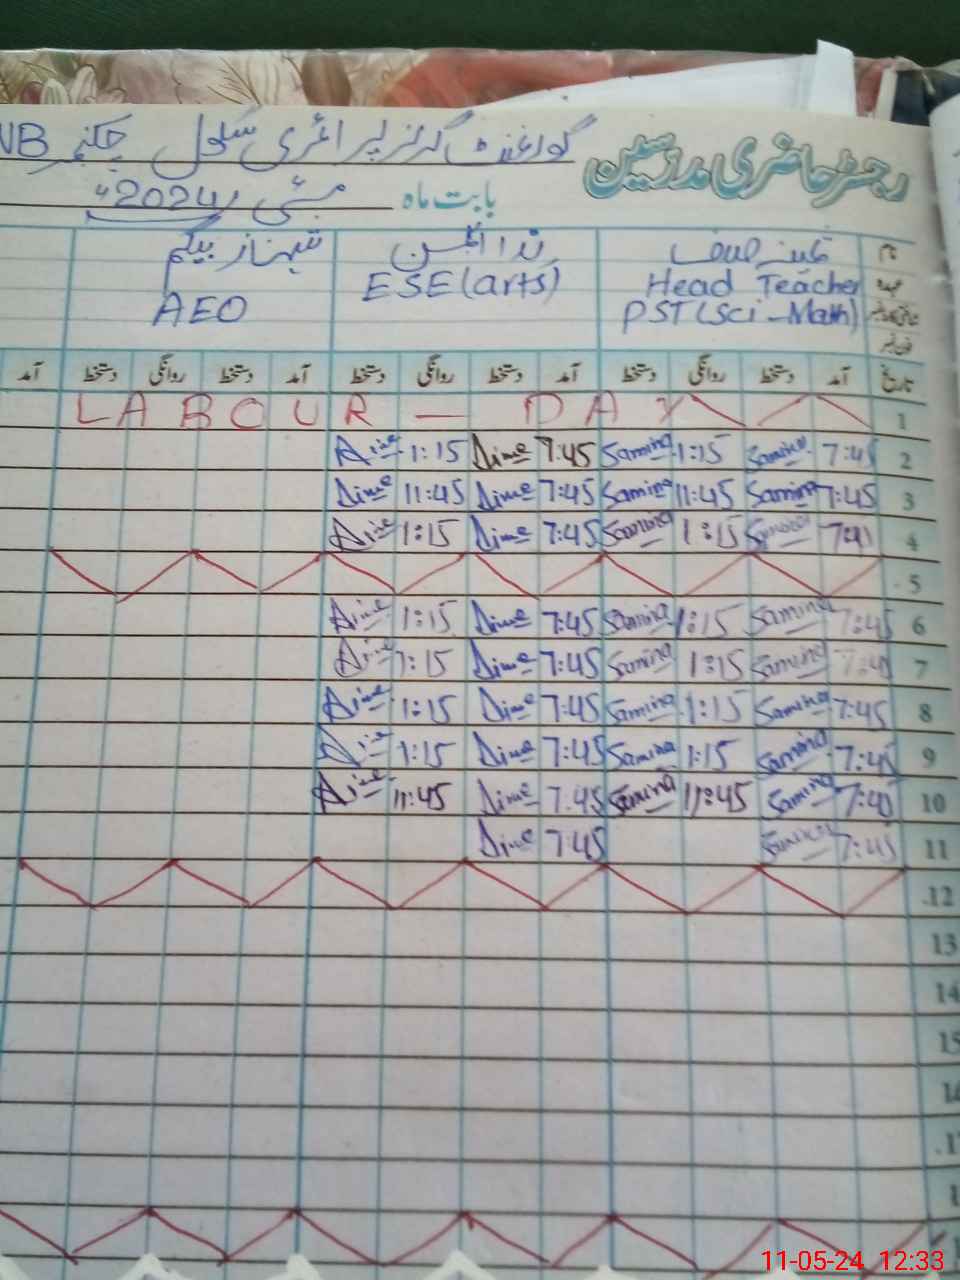 رجسٹر حاضری مدرسین گورنمنٹ گرلز پرائمری سکول چکنمبر NB
بابت ماہ مئی 2024ء
نام ندا شہناز بیگم
عہدہ Head Teacher ESE (arts) AEO
PST (Sci-Math)
تاریخ آمد دستخط روانگی دستخط آمد دستخط روانگی دستخط آمد دستخط روانگی دستخط آمد
1 LABOUR — DAY
2 7:45 Samina 1:15 Samina 7:45 1:15
3 7:45 Samina 11:45 Samina 7:45 11:45
4 Samina 1:15 Samina 7:45 1:15
5
6 7:45 Samina 1:15 Samina 7:45 1:15
7 Samina 1:15 Samina 7:45 1:15
8 7:45 Samina 1:15 Samina 7:45 1:15
9 7:45 Samina 1:15 Samina 7:45 1:15
10 Samina 11:45 Samina 7:45 11:45
11 7:45 Samina 7:45
12
13
14
15
11-05-24 12:33